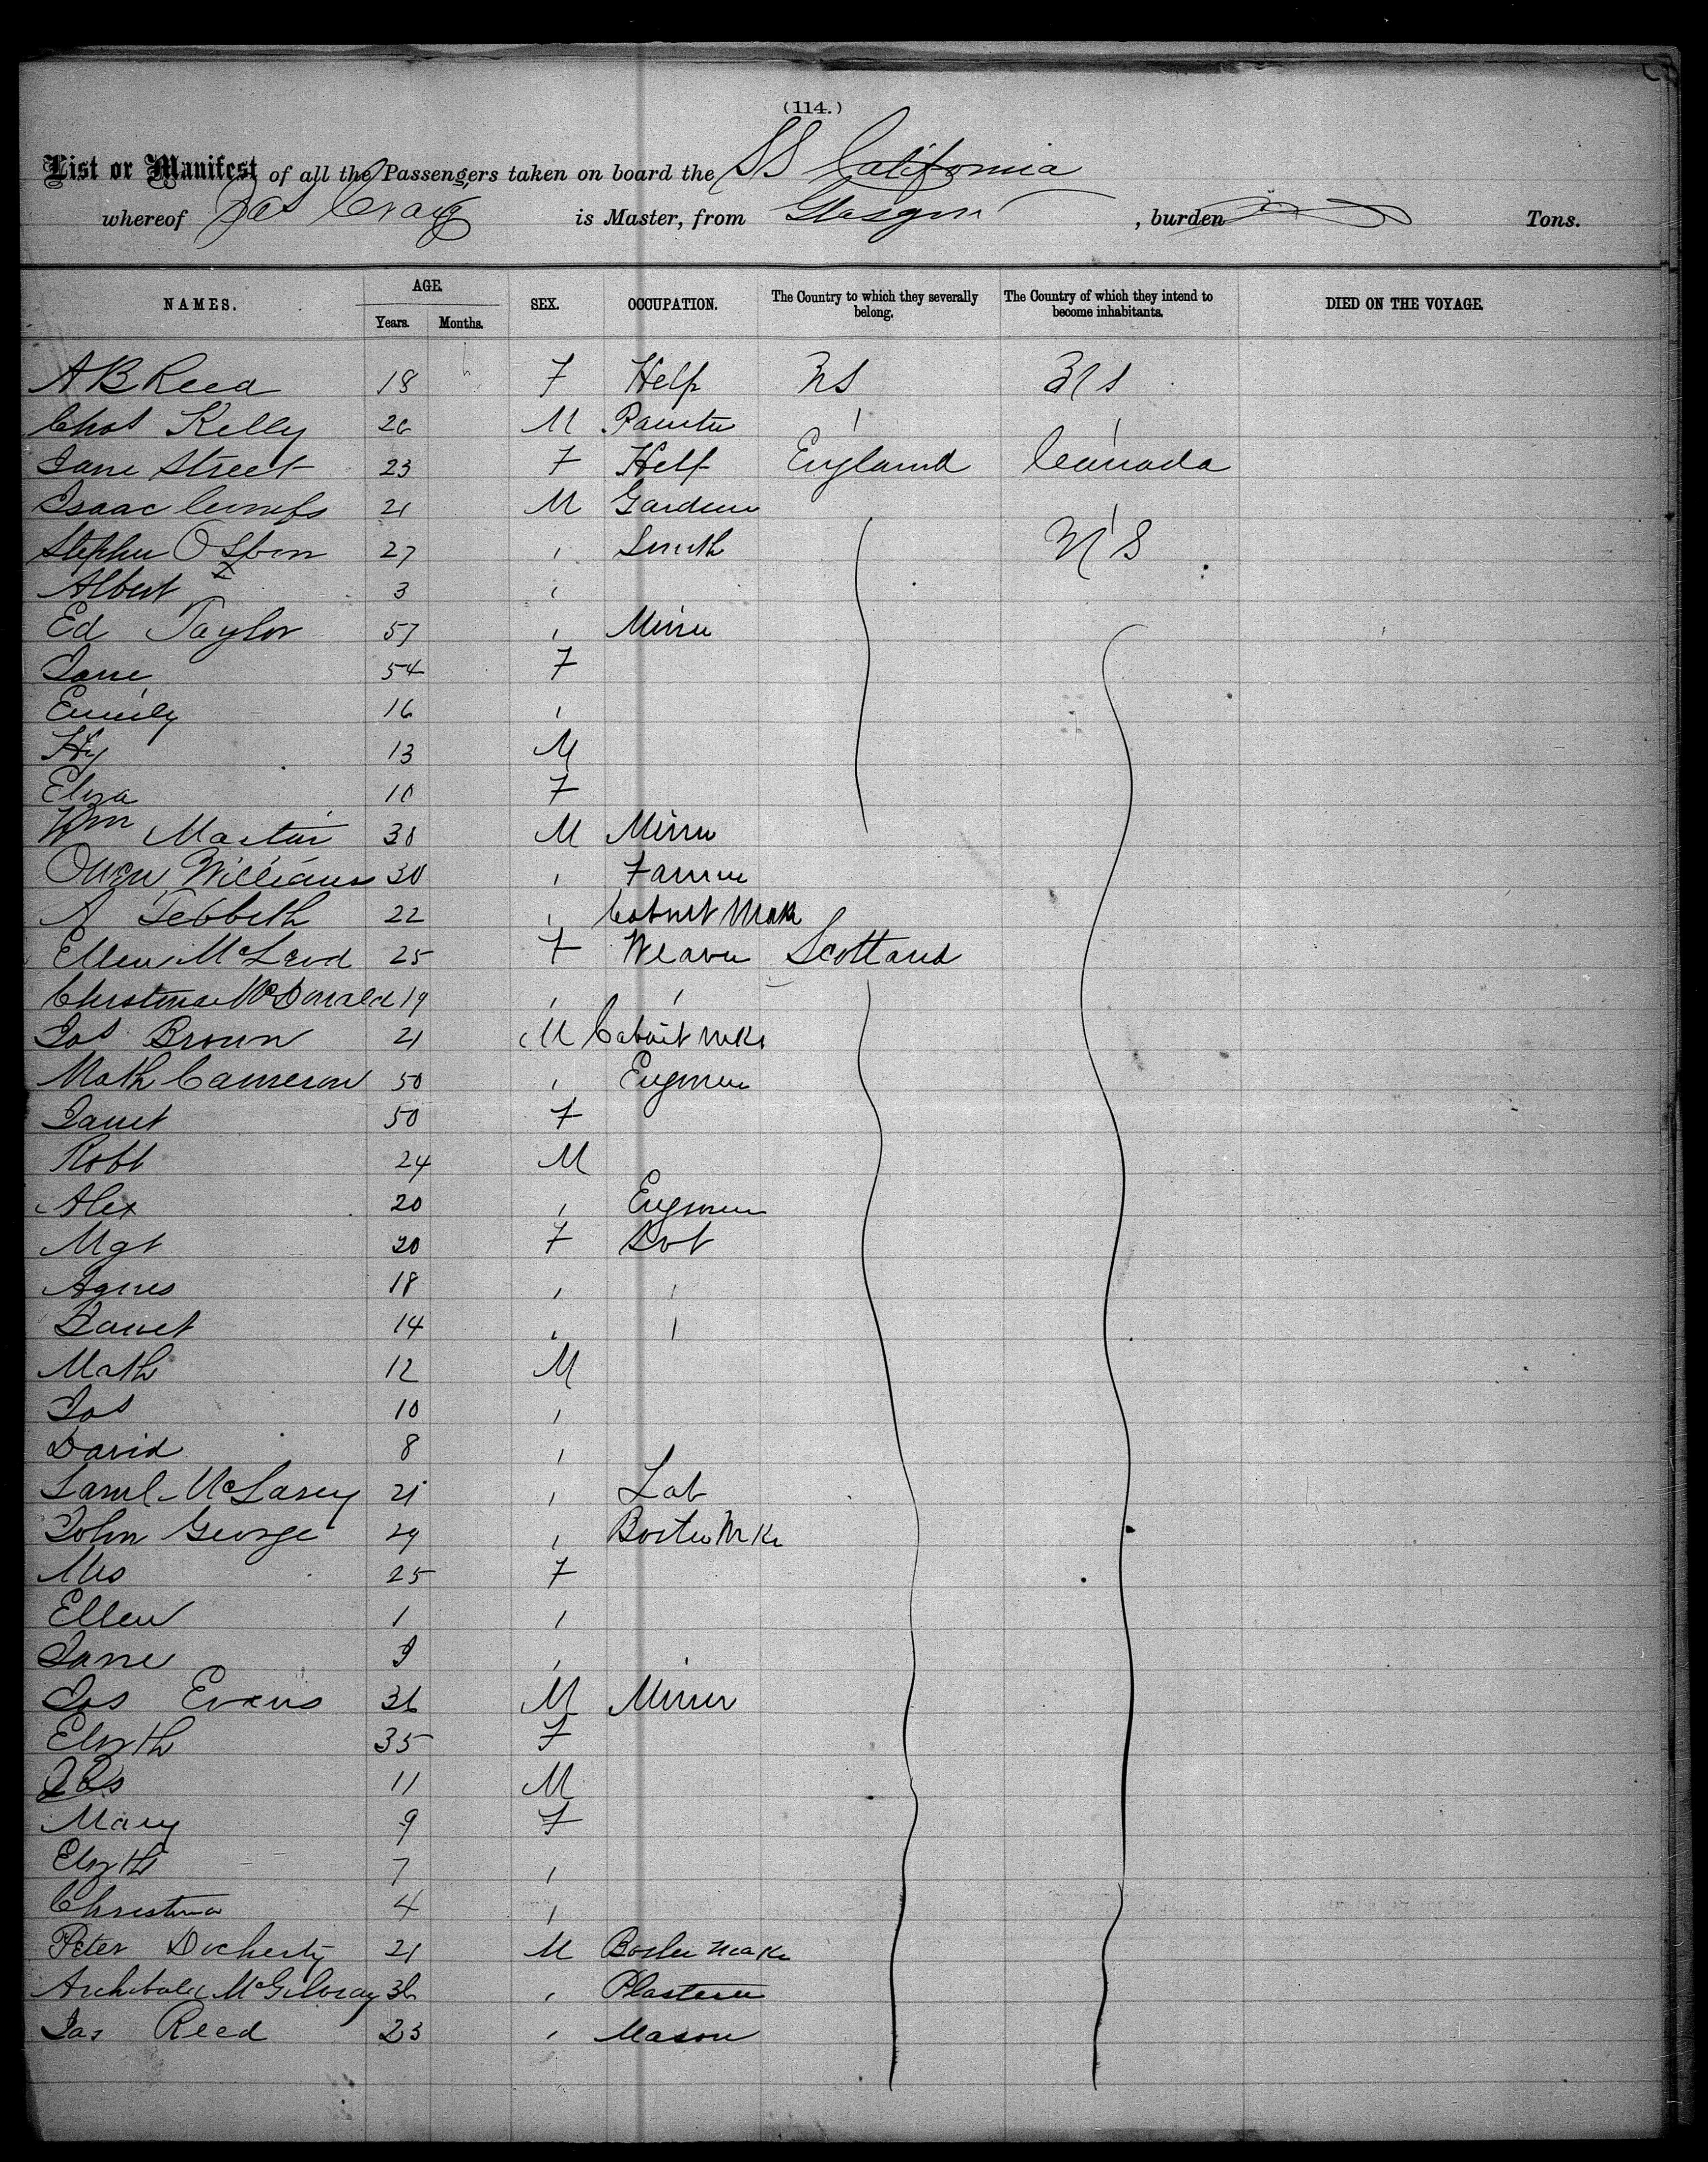 (114.)
List or Manifest of all the Passengers taken on board the SS California
whereof Jas Craig is Master, from Glasgow, burden Tons.
NAMES. AGE. Years. Months. SEX. OCCUPATION. The Country to which they severally belong. The Country of which they intend to become inhabitants. DIED ON THE VOYAGE.
A B Reed 18 F Help US US
Chas Kelly 26 M Painter " "
Jane Street 23 F Help England Canada
Isaac 21 M Gardener "
Stephen Osborn 27 " Smith US
Albert 3 "
Ed Taylor 57 " Miner
Jane 54 F
Emily 16 "
Hy 13 M
Eliza 10 F
Wm Martin 30 M Miner
Owen Williams 30 " Farmer
A Tebbeth 22 " Cabinet Mak
Ellen McLeod 25 F Weaver Scotland
Christina McDonald 19 " "
Jas Brown 21 M Cabinet mkr
Math Cameron 50 " Engineer
Janet 50 F
Robt 24 M
Alex 20 " Engineer
Mgt 20 F
Agnes 18 " "
Janet 14 " "
Math 12 M
Jas 10 "
David 8 "
Saml 21 " Lab
John George 29 " Boiler Mkr
Mrs 25 F
Ellen 1 "
Jane "
Jas Evans 36 M Miner
Elizth 35 F
Jas 11 M
Mary 9 F
Elizth 7 "
Christina 4 "
Peter Docherty 21 M Boiler maker
Archibald McGilvray 36 " Plasterer
Jas Reed 23 " Mason